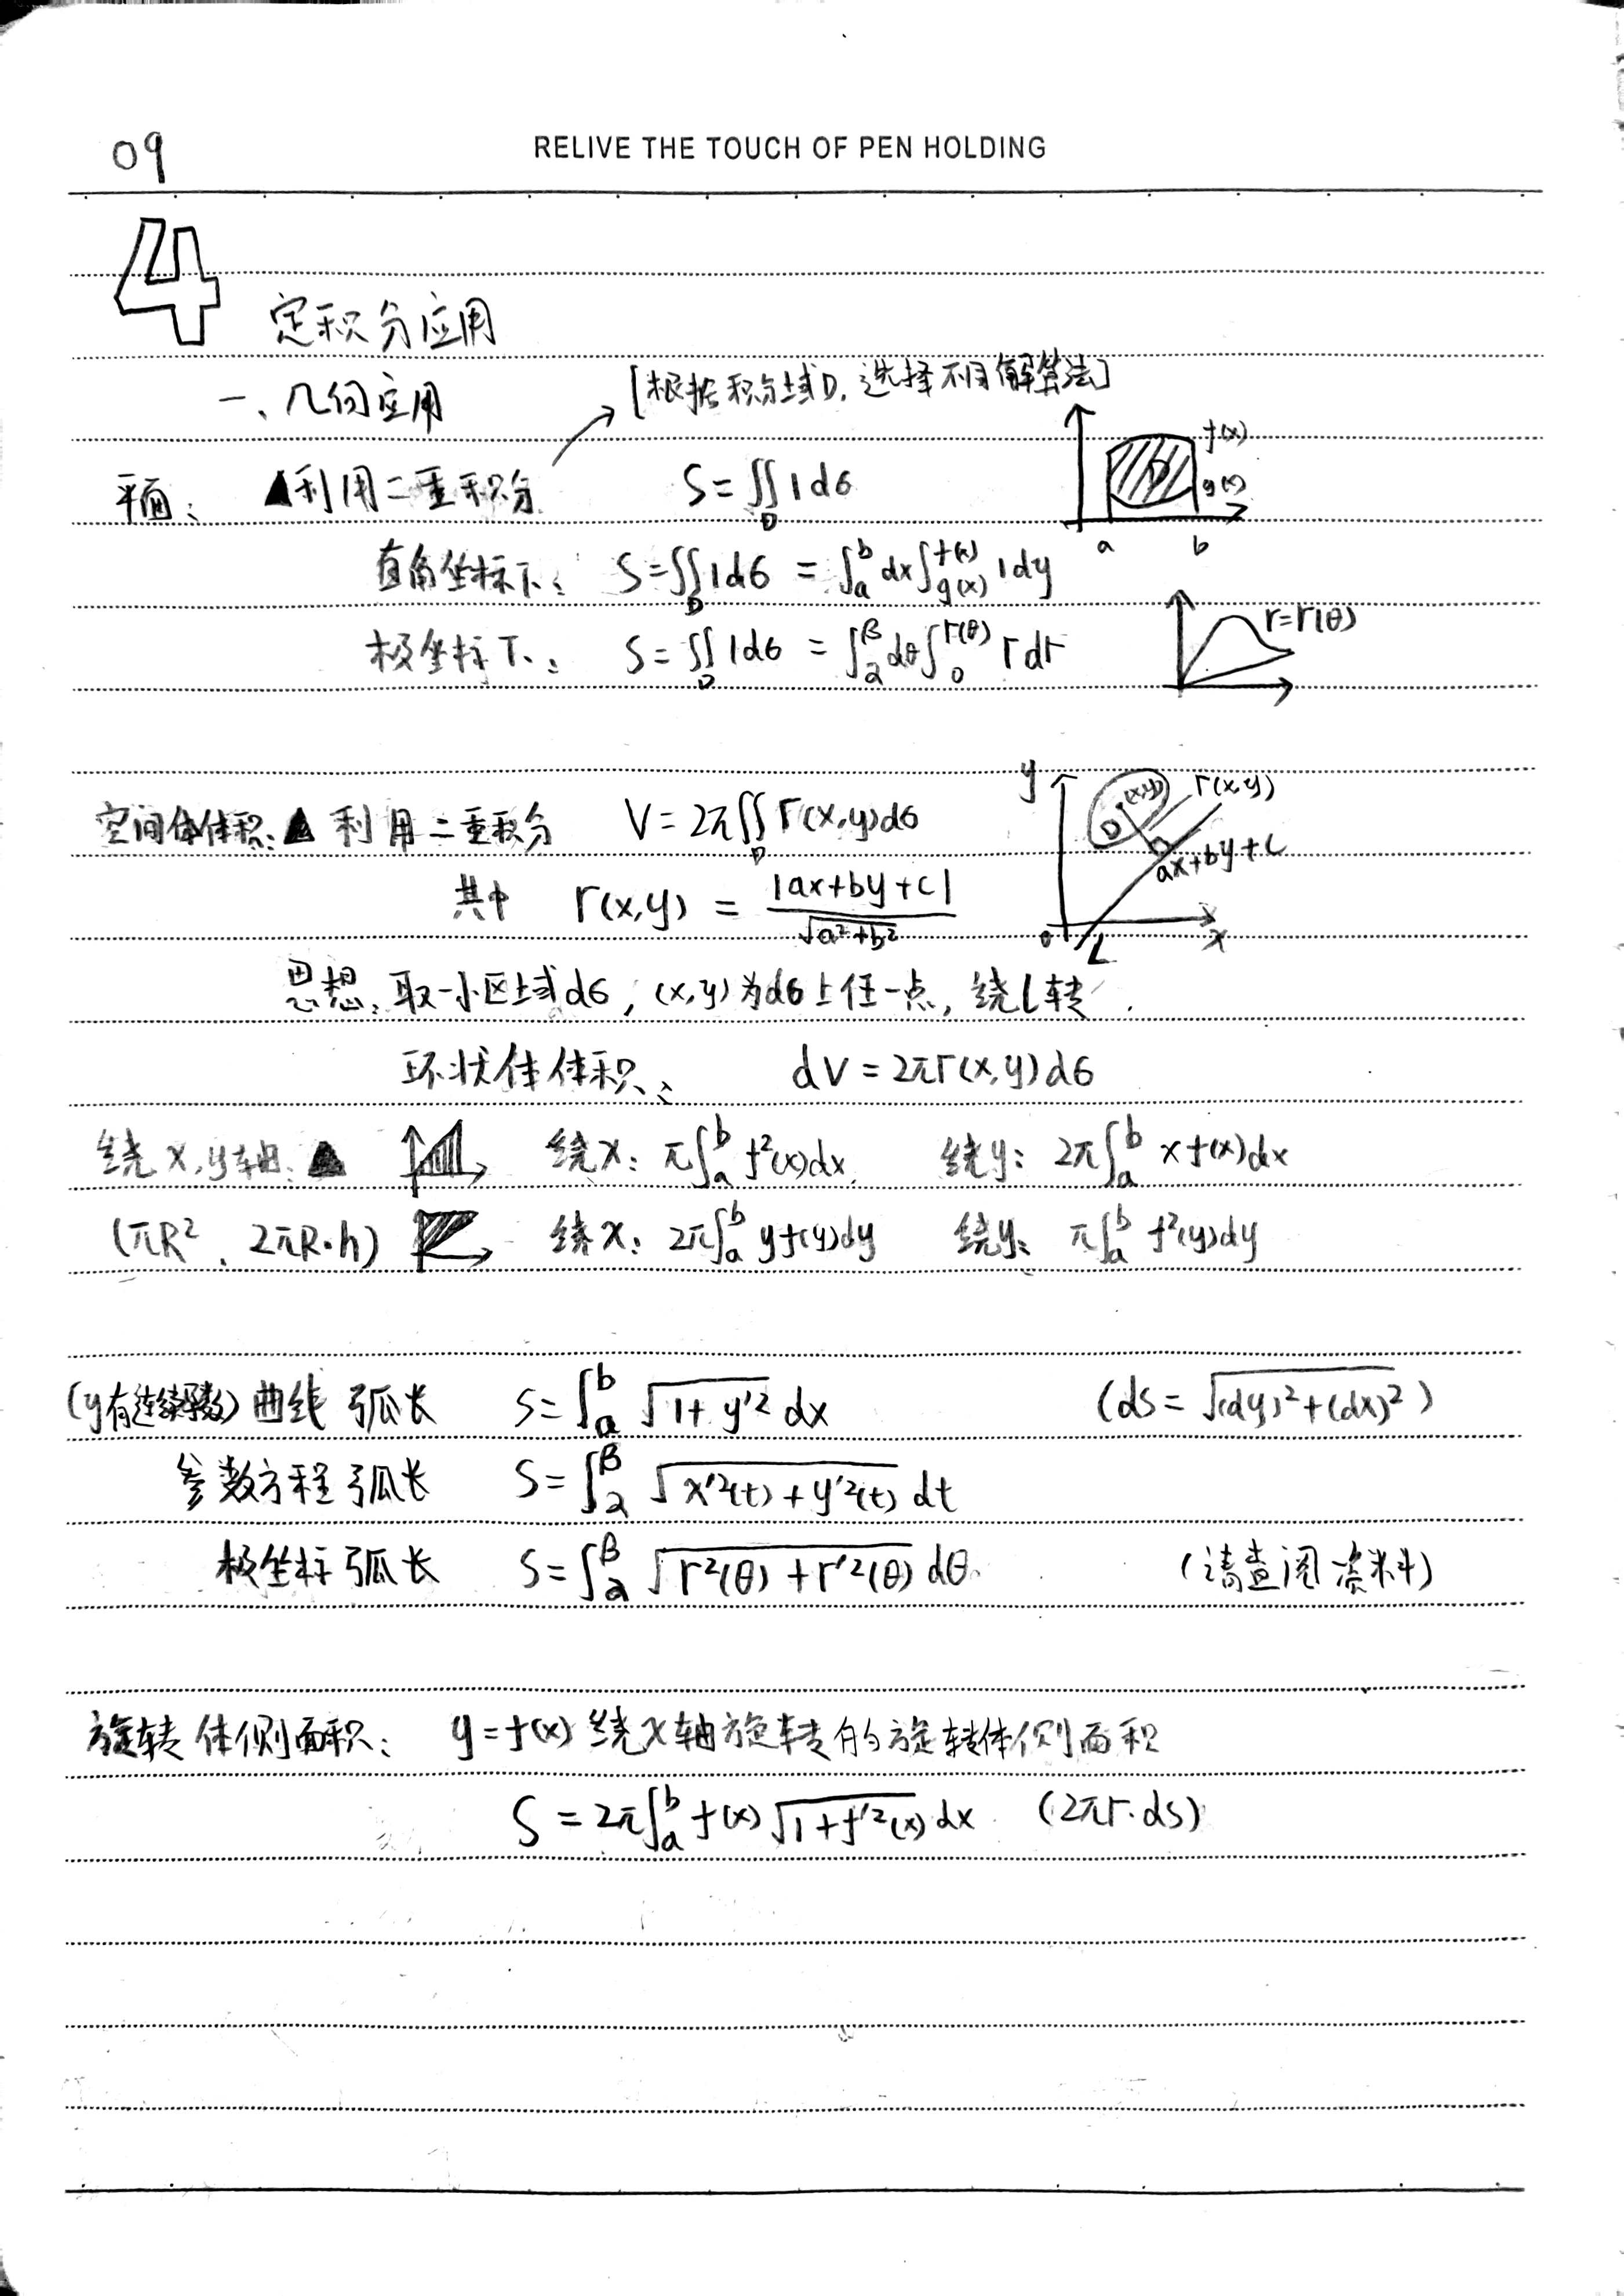 09
RELIVE THE TOUCH OF PEN HOLDING
4
定积分应用
一、几何应用
[根据积分域D,选择不同解算法]
平面: ▲利用二重积分 S=∬_D 1dσ
f(x)
D
g(x)
a b
直角坐标下: S=∬_D 1dσ = ∫_a^b dx∫_{g(x)}^{f(x)} 1dy
极坐标下: S=∬_D 1dσ = ∫_α^β dθ∫_0^{r(θ)} r dr
r=r(θ)
空间体体积:▲利用二重积分 V=2π∬_D r(x,y)dσ
y
D (x,y) r(x,y)
ax+by+c
0 L x
其中 r(x,y) = |ax+by+c| / √(a²+b²)
思想:取一小区域dσ, (x,y)为dσ上任一点, 绕L转.
环状体体积: dV=2πr(x,y)dσ
绕x,y轴:▲ 绕x: π∫_a^b f²(x)dx. 绕y: 2π∫_a^b xf(x)dx
(πR², 2πR·h) 绕x: 2π∫_a^b yf(y)dy 绕y: π∫_a^b f²(y)dy
(y有连续导数)曲线弧长 S=∫_a^b √(1+y'²) dx (ds=√((dy)²+(dx)²))
参数方程弧长 S=∫_α^β √(x'²(t)+y'²(t)) dt
极坐标弧长 S=∫_α^β √(r²(θ)+r'²(θ)) dθ. (请查阅资料)
旋转体侧面积: y=f(x)绕x轴旋转的旋转体侧面积
S=2π∫_a^b f(x)√(1+f'²(x)) dx. (2πr·ds)